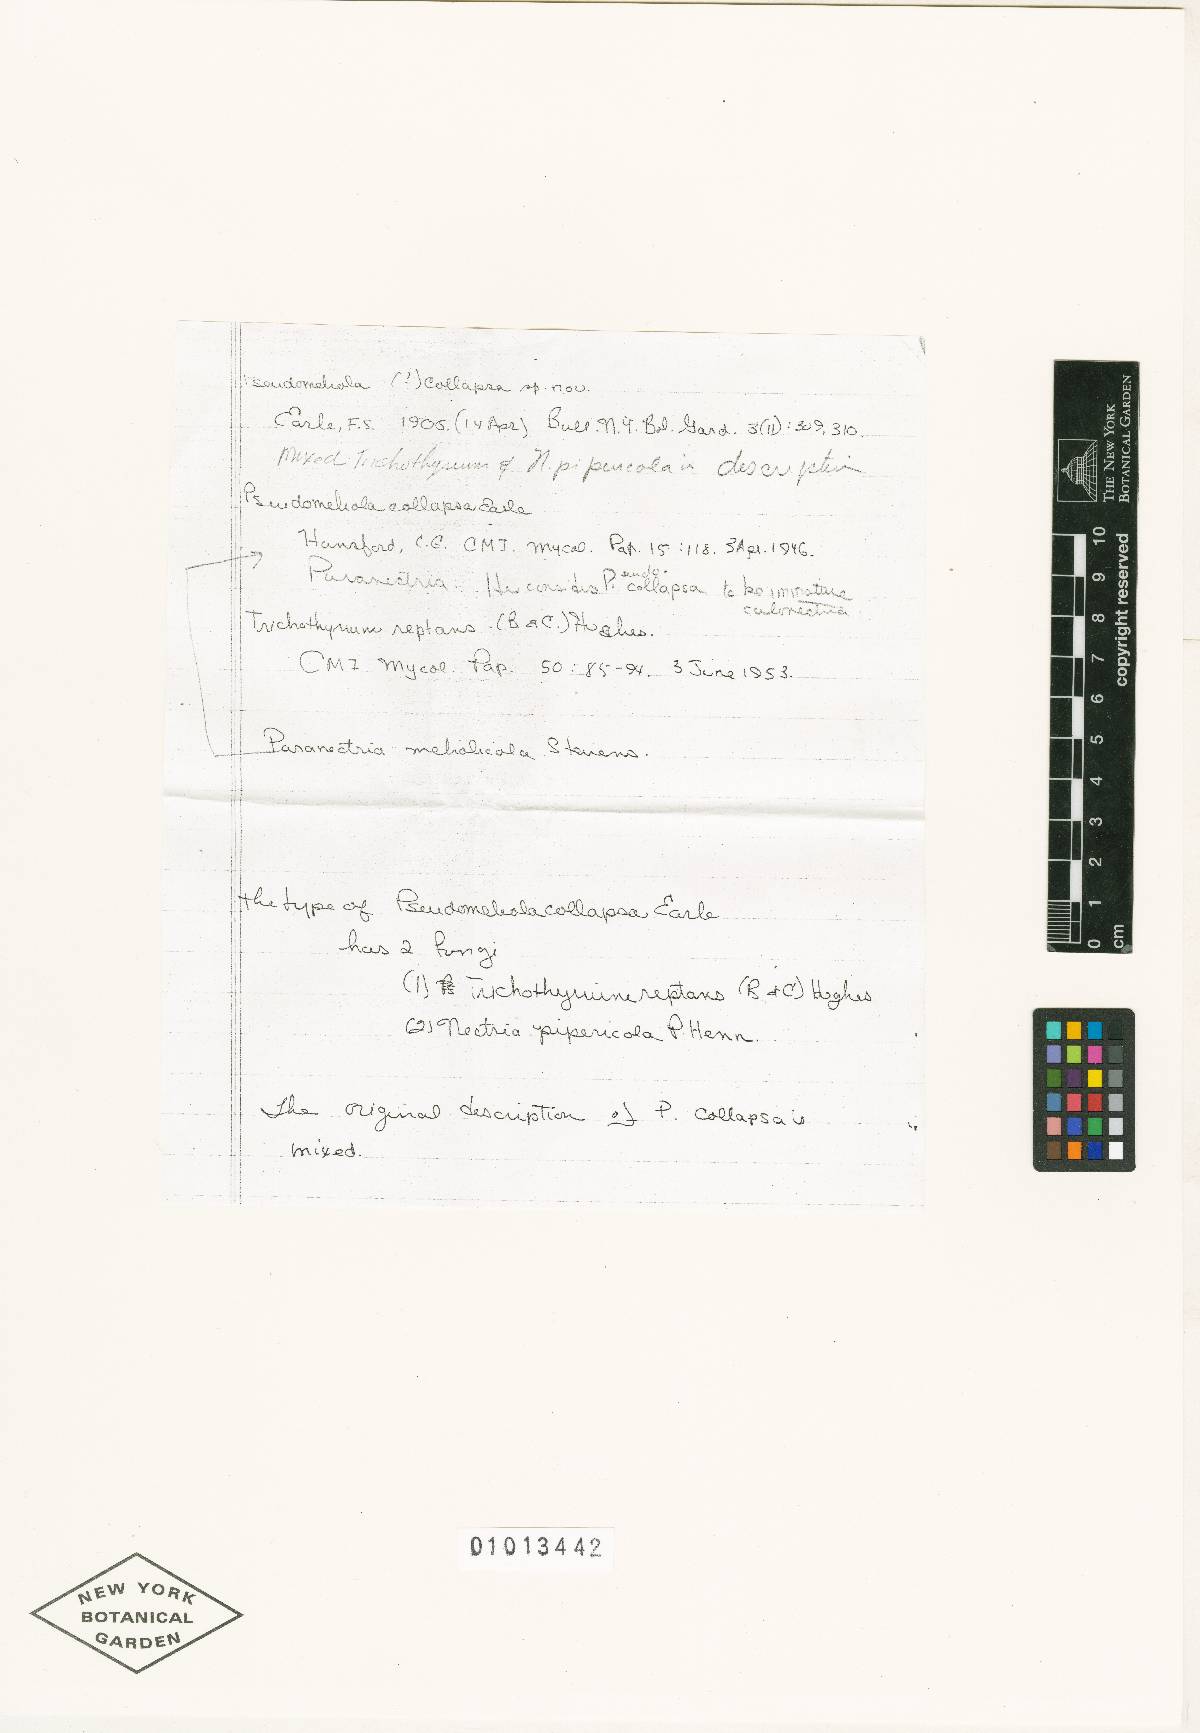 Pseudomeliola (?) collapsa sp. nov.
Earle, F.S. 1905. (14 Apr) Bull. N.Y. Bot. Gard. 3(11): 309, 310.
Mixed Trichothyrium & N. pipericola in description
Pseudomeliola collapsa Earle
Hansford, C.G. CMI. Mycol. Pap. 15:118. 3 Apr. 1946.
Paranectria. He considers Pseudo. collapsa to be immature
calonectria
Trichothyrium reptans (B & C.) Hughes.
CMI Mycol. Pap. 50:85-94. 3 June 1953.
Paranectria meliolicola Stevens.
The type of Pseudomeliola collapsa Earle
has 2 fungi
(1) Trichothyrium reptans (B & C) Hughes
(2) Nectria pipericola P. Henn.
The original description of P. collapsa is
mixed.
01013442
NEW YORK
BOTANICAL
GARDEN
THE NEW YORK
BOTANICAL GARDEN
copyright reserved
0 1 2 3 4 5 6 7 8 9 10
cm